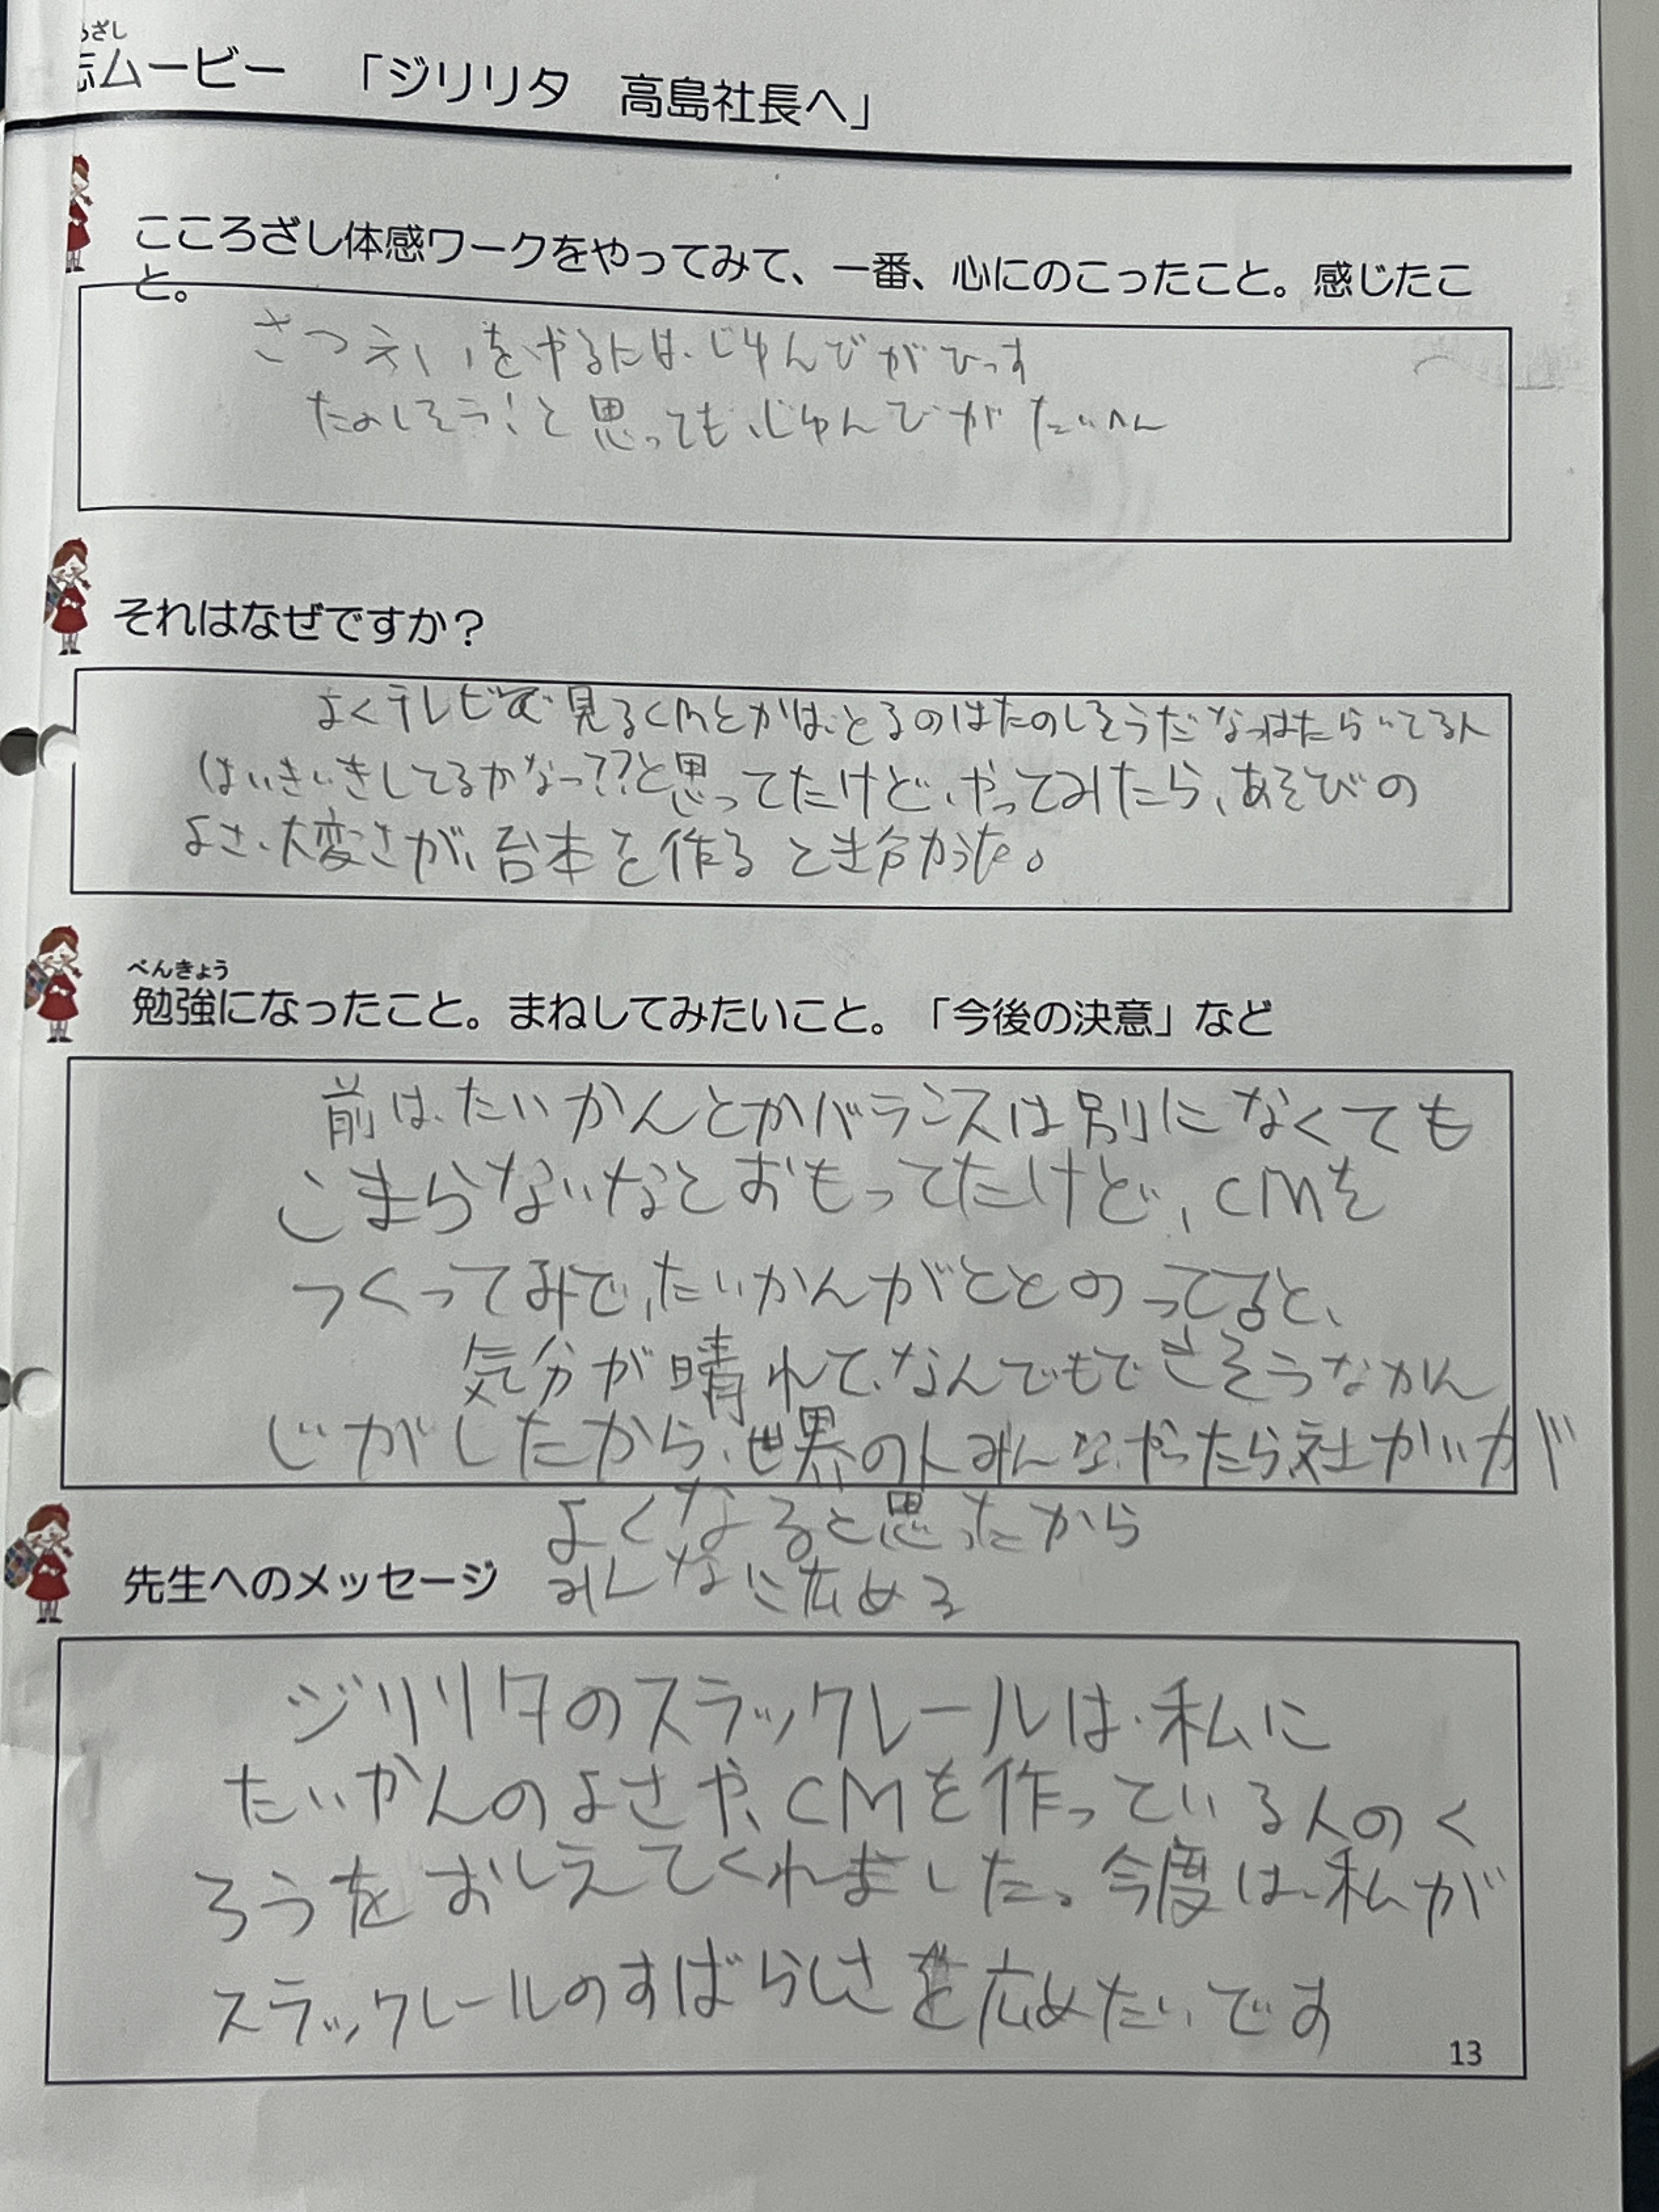 ろざし
志ムービー　「ジリリタ　高島社長へ」
こころざし体感ワークをやってみて、一番、心にのこったこと。感じたこ
と。
さつえいをやるには、じゅんびがひっす
たのしそう!と思っても、じゅんびがたいへん
それはなぜですか？
よくテレビで見るCMとかは、とるのはたのしそうだなっはたらいてる人
はいきいきしてるかなっ??と思ってたけど、やってみたら、あそびの
よさ、大変さが、台本を作るとき分かった。
べんきょう
勉強になったこと。まねしてみたいこと。「今後の決意」など
前は、たいかんとかバランスは別になくても
こまらないなとおもってたけど、CMを
つくってみて、たいかんがととのってると、
気分が晴れて、なんでもできそうなかん
じがしたから、世界の人みんな、やったら、社かいが
よくなると思ったから
みんなに広める
先生へのメッセージ
ジリリタのスラックレールは、私に
たいかんのよさや、CMを作っている人のく
ろうをおしえてくれました。今度は、私が
スラックレールのすばらしさを広めたいです
13